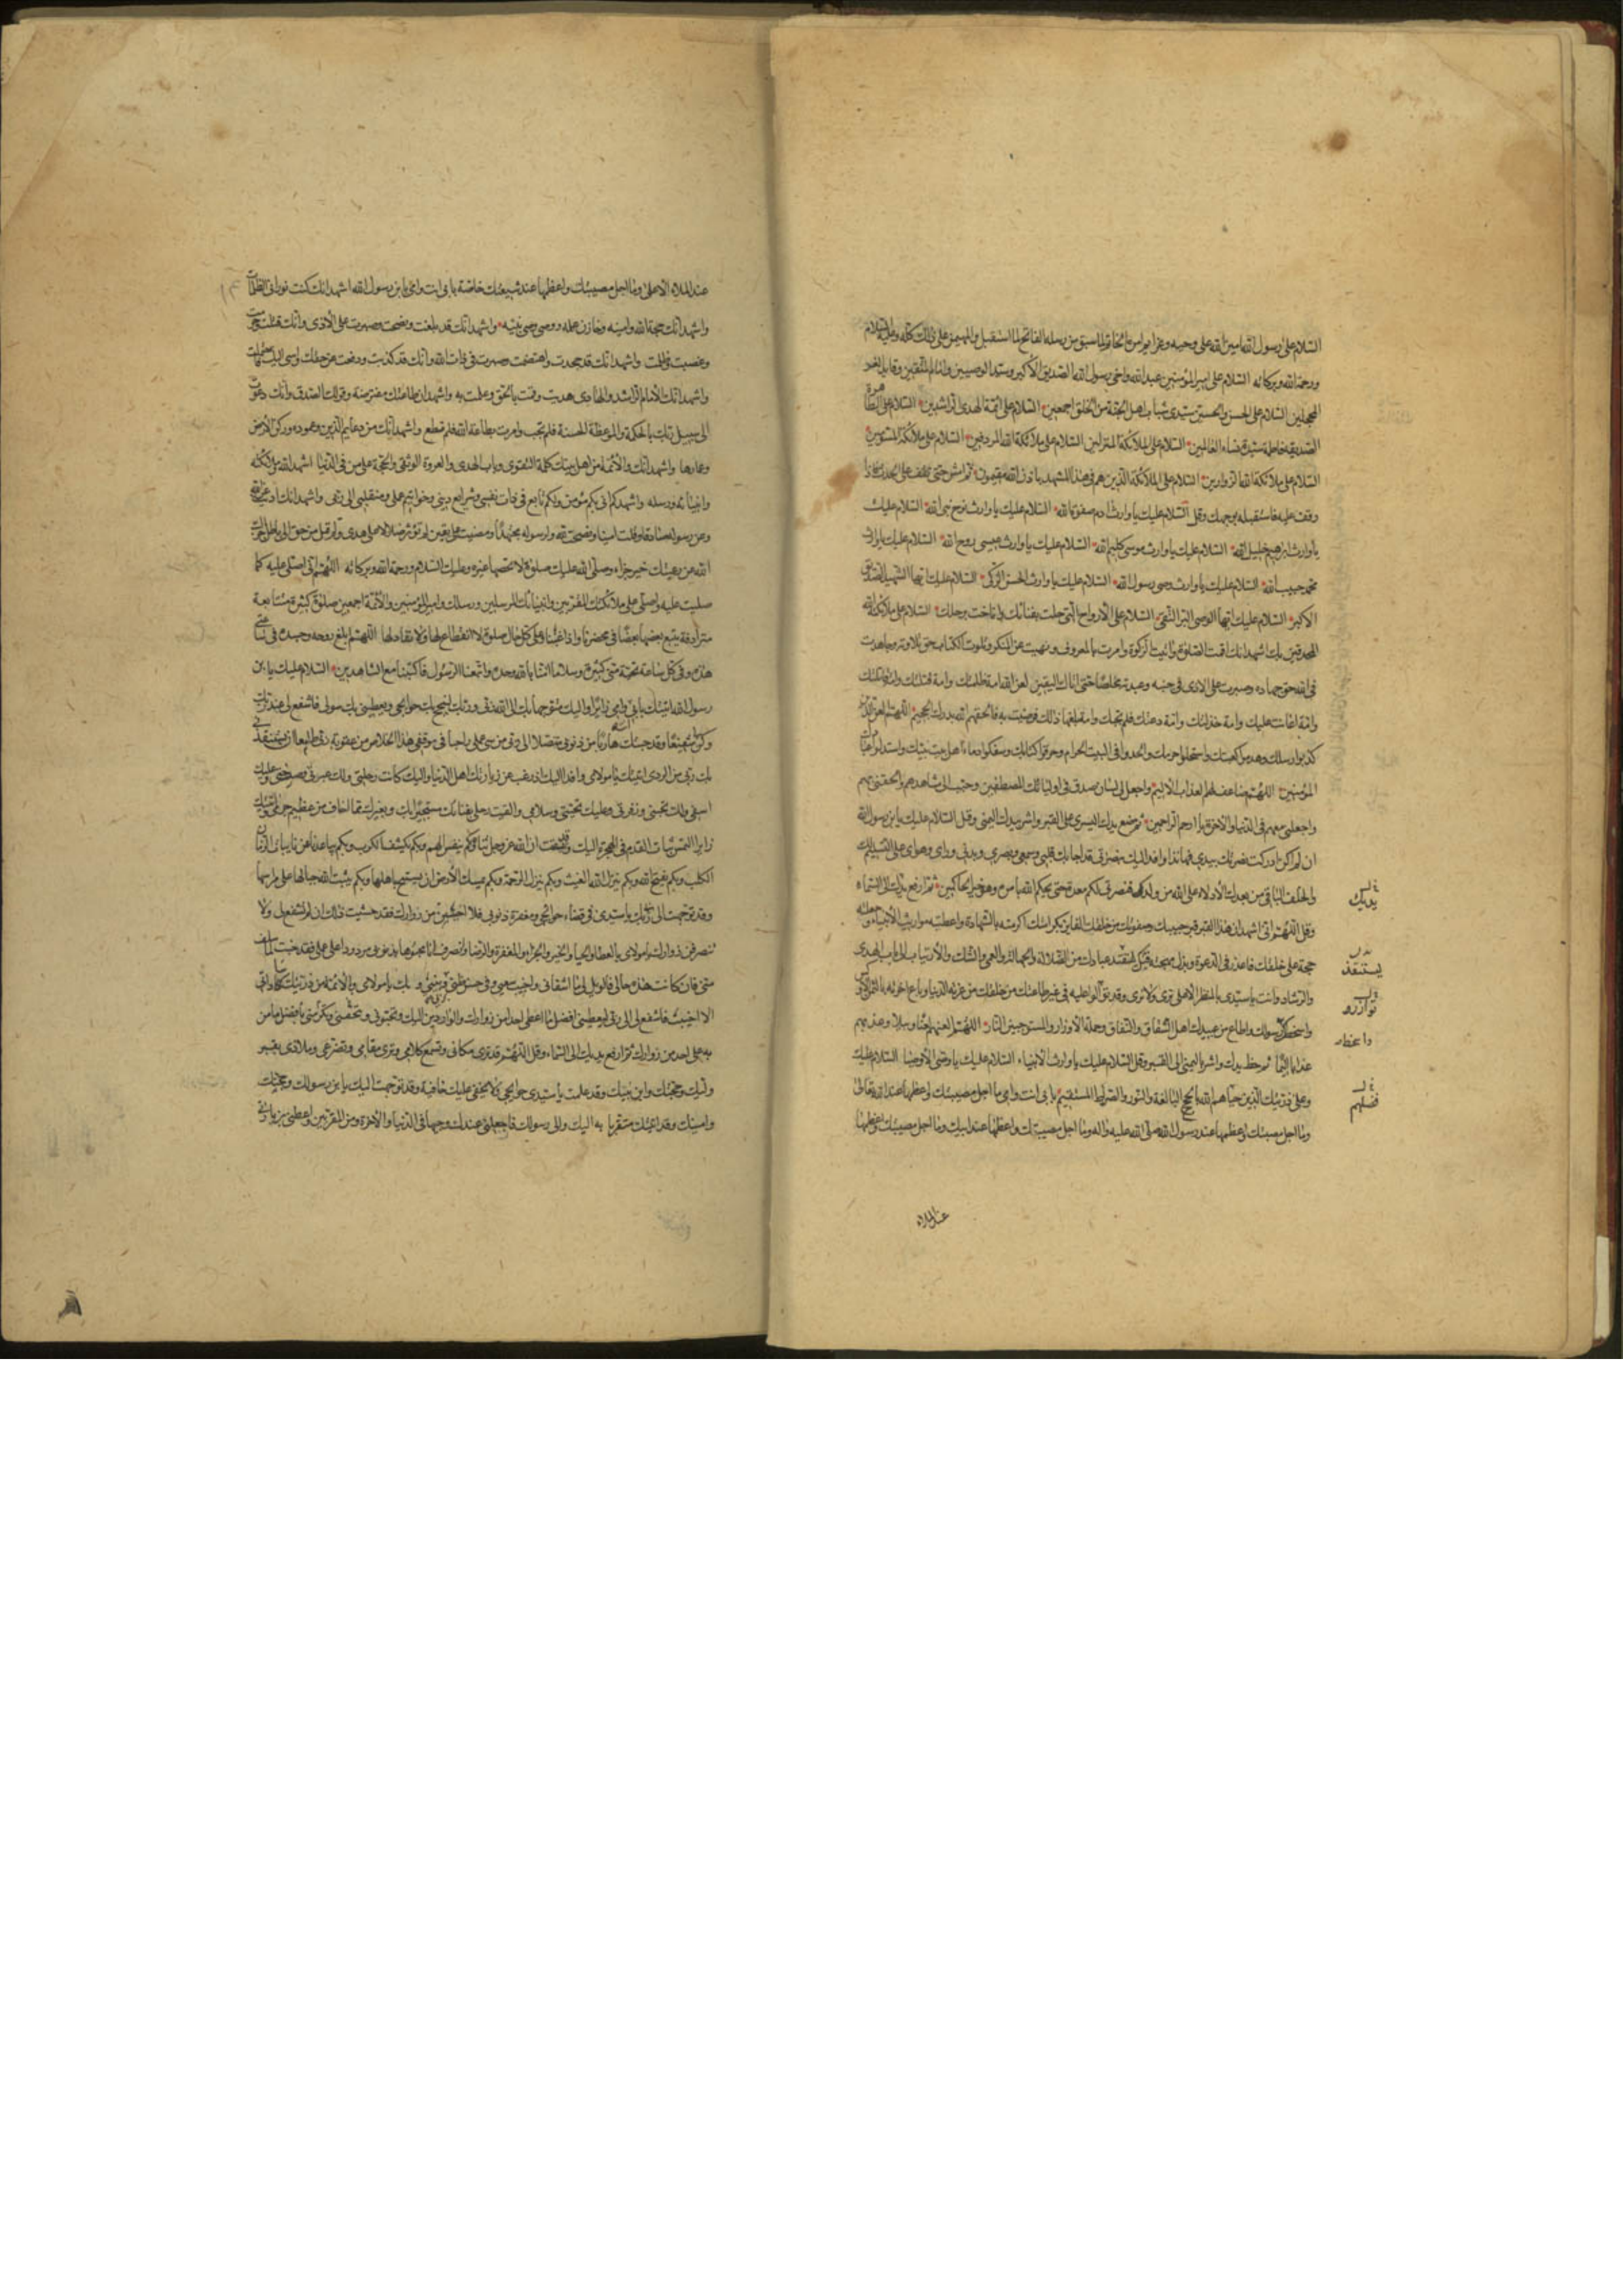 السلام على رسول الله امين الله على وحيه وعزايم امره الخاتم لما سبق من رسله الفاتح لما استقبل والمهيمن على ذلك كله وعليه السلام
ورحمة الله وبركاته السلام على امير المؤمنين عبد الله واخي رسول الله الصديق الأكبر وسيد الوصيين وامام المتقين وقايد الغر
المحجلين السلام على الحسن والحسين سيدي شباب اهل الجنة من الخلق اجمعين السلام على ائمة الهدى الراشدين السلام على الطاهرة
الصديقة فاطمة سيدة نساء العالمين السلام على الملائكة المنزلين السلام على ملائكة الله المردفين السلام على ملائكة الله المسومين
السلام على ملائكة الله الزوارين السلام على الملائكة الذين هم في هذا المشهد باذن الله مقيمون ثم امش حتى تقف على الجدث فاذا
وقفت عليه فاستقبله بوجهك وقل السلام عليك يا وارث ادم صفوة الله السلام عليك يا وارث نوح نبي الله السلام عليك
يا وارث ابرهيم خليل الله السلام عليك يا وارث موسى كليم الله السلام عليك يا وارث عيسى روح الله السلام عليك يا وارث
محمد حبيب الله السلام عليك يا وارث وصي رسول الله السلام عليك يا وارث الحسن الزكي السلام عليك ايها الشهيد الصديق
الأكبر السلام عليك ايها الوصي البر التقي السلام على الأرواح التي حلت بفنائك واناخت برحلك السلام على ملائكة الله
المحدقين بك اشهد انك اقمت الصلوة واتيت الزكوة وامرت بالمعروف ونهيت عن المنكر وتلوت الكتاب حق تلاوته وجاهدت
في الله حق جهاده وصبرت على الاذى في جنبه وعبدته مخلصا حتى اتاك اليقين لعن الله امة ظلمتك وامة قتلتك وامة قاتلتك
وامة اعانت عليك وامة خذلتك وامة دعتك فلم تجبك وامة بلغها ذلك فرضيت به والحقهم الله بدرك الجحيم اللهم العن الذين
كذبوا رسلك وهدموا كعبتك واستحلوا حرمك والحدوا في البيت الحرام وحرفوا كتابك وسفكوا دماء اهل بيت نبيك واستذلوا عبادك
المؤمنين اللهم ضاعف لهم العذاب الأليم واجعل لي لسان صدق في اوليائك المصطفين وحبب الي مشاهدهم والحقني بهم
واجعلني معهم في الدنيا والاخرة يا ارحم الراحمين ثم ضع يدك اليسرى على القبر واشر بيدك اليمنى وقل السلام عليك يا بن رسول الله
ان لم اكن ادركت نصرتك بيدي فها انا ذا وافد اليك بنصرتي قد اجابك قلبي وسمعي وبصري وبدني ورايي وهواي على التسليم لك
والخلف الباقي من بعدك الأدلاء على الله من ولدك فنصرتي لكم معدة حتى يحكم الله بامره وهو خير الحاكمين ثم ارفع يدك الى السماء
وقل اللهم اني اشهد ان هذا القبر قبر حبيبك وصفوتك من خلقك الفايز بكرامتك اكرمته بالشهادة واعطيته مواريث الأنبياء وجعلته
حجة على خلقك فاعذر في الدعوة وبذل مهجته فيك ليستنقذ عبادك من الضلالة والجهالة والعمى والشك والأرتياب الى باب الهدى
والرشاد وانت يا سيدي بالمنظر الاعلى ترى ولا ترى وقد توازر عليه في غير طاعتك من خلقك من غرته الدنيا وباع اخرته بالثمن الأوكس
واسخطك ورسولك واطاع من عبيدك اهل الشقاق والنفاق وحملة الأوزار والمستوجبين النار اللهم العنهم لعنا وبيلا وعذبهم
عذابا اليما ثم حط يدك واشر باليمنى الى القبر وقل السلام عليك يا وارث الأنبياء السلام عليك يا وصي الأوصيا السلام عليك
وعلى ذريتك الذين حباهم الله بالحجج البالغة والنور والصراط المستقيم بابي انت وامي ما اجل مصيبتك واعظمها عند الله تعالى
وما اجل مصيبتك واعظمها عند رسول الله صلى الله عليه واله وما اجل مصيبتك واعظمها عند ابيك وما اجل مصيبتك واعظمها
يديك
يستنقذ
توازرو
عند الملاء
عند الملاء الاعلى وما اجل مصيبتك واعظمها عند شيعتك خاصة بابي انت وامي يا بن رسول الله اشهد انك كنت نورا في الظلمات
واشهد انك حجة الله وامينه وخازن علمه ووصي وصي نبيه واشهد انك قد بلغت ونصحت وصبرت على الأذى وانك قد قتلت وحرمت
وغصبت وظلمت واشهد انك قد جحدت واهتضمت وصبرت في ذات الله وانك قد كذبت ودفعت عن حقك واسي اليك فاحتملت
واشهد انك الأمام الراشد والهادي هديت وقمت بالحق وعملت به واشهد ان طاعتك مفترضة وقولك الصدق وانك دعوت
الى سبيل ربك بالحكمة والموعظة الحسنة فلم تجب وامرت بطاعة الله فلم تطع واشهد انك من دعايم الدين وعموده وركن الأرض
وعمادها واشهد انك والأئمة من اهل بيتك كلمة التقوى وباب الهدى والعروة الوثقى والحجة على من في الدنيا اشهد الله وملائكته
وانبيائه ورسله واشهدكم اني بكم مؤمن ولكم تابع في ذات نفسي وشرايع ديني وخواتيم عملي ومنقلبي الى ربي واشهد انك اديت عن الله
وعن رسوله صادقا وقلت امينا ونصحت لله ولرسوله مجتهدا ومضيت على يقين لم تؤثر ضلالا على هدى ولم تمل من حق الى باطل فجزاك
الله عن رعيتك خير جزاء وصلى الله عليك صلوة لا يحصيها غيره وعليك السلام ورحمة الله وبركاته اللهم اني اصلي عليه كما
صليت عليه وصلى عليه ملائكتك المقربين وانبيائك المرسلين ورسلك وامير المؤمنين والأئمة اجمعين صلوة كثيرة متتابعة
مترادفة يتبع بعضها بعضا في محضرنا واذا غبنا وعلى كل حال صلوة لا انقطاع لها ولا نفاد لها اللهم بلغ روحه وجسده في ساعتي
هذه وفي كل ساعة تحية مني كثيرة وسلاما امنا بالله وحده واتبعنا الرسول فاكتبنا مع الشاهدين السلام عليك يا بن
رسول الله اتيتك بابي وامي زائرا وافدا اليك متوجها بك الى الله ربي وربك لينجح بك حوائجي ويعطيني بك سولي فاشفع لي عنده
وكن لي شفيعا وقد جئتك هاربا من ذنوبي متنصلا الى ربي من سيئ عملي راجيا في موقفي هذا الخلاص من عقوبة ربي طامعا ان يستنقذني
بك ربي من الردى اتيتك يا مولاي وافدا اليك اذ رغب عن زيارتك اهل الدنيا واليك كانت رحلتي ولك عبرتي وصرختي وعليك
اسفي ولك نحيبي وزفرتي وعليك تحيتي وسلامي والقيت رحلي بفنائك مستجيرا بك وبقبرك مما اخاف من عظيم جرمي واتيتك
زايرا التمس ثبات القدم في الهجرة اليك وقد تيقنت ان الله عز وجل ثناؤه بكم ينفس الهم وبكم يكشف الكرب وبكم يباعد نائبات الزمان
الكلب وبكم فتح الله وبكم ينزل الغيث وبكم ينزل الرحمة وبكم يمسك الأرض ان تسيخ باهلها وبكم يثبت الله جبالها على مراسيها
وقد توجهت الى ربي بك يا سيدي في قضاء حوائجي ومغفرة ذنوبي فلا اخيبن من زوارك فقد خشيت ذلك ان لم تشفع لي ولا
ينصرفن زوارك يا مولاي بالعطا والحبا والخير والجزاء والمغفرة والرضا وانصرف انا مجبوها بذنوبي مردودا علي عملي قد خيبت لما سلف
مني فان كانت هذه حالي فالويل لي ما اشقاني واخيب سعيي وفي حسن ظني بربي ونبيي وبك يا مولاي وبالأئمة من ذريتك ساداتي
الا اخيب فاشفع لي الى ربي ليعطيني افضل ما اعطى احدا من زوارك والوافدين اليك ويحبوني ويكرمني ويتحفني بافضل ما من
به على احد من زوارك ثم ارفع يديك الى السماء وقل اللهم قد ترى مكاني وتسمع كلامي وترى مقامي وتضرعي وملاذي بقبر
وليك وحجتك وابن نبيك وقد علمت يا سيدي حوائجي ولا يخفى عليك خافية وقد توجهت اليك بابن رسولك وحجتك
وامينك وقد اتيتك متقربا به اليك والى رسولك فاجعلني عندك وجيها في الدنيا والاخرة ومن المقربين واعطني بزيارتي